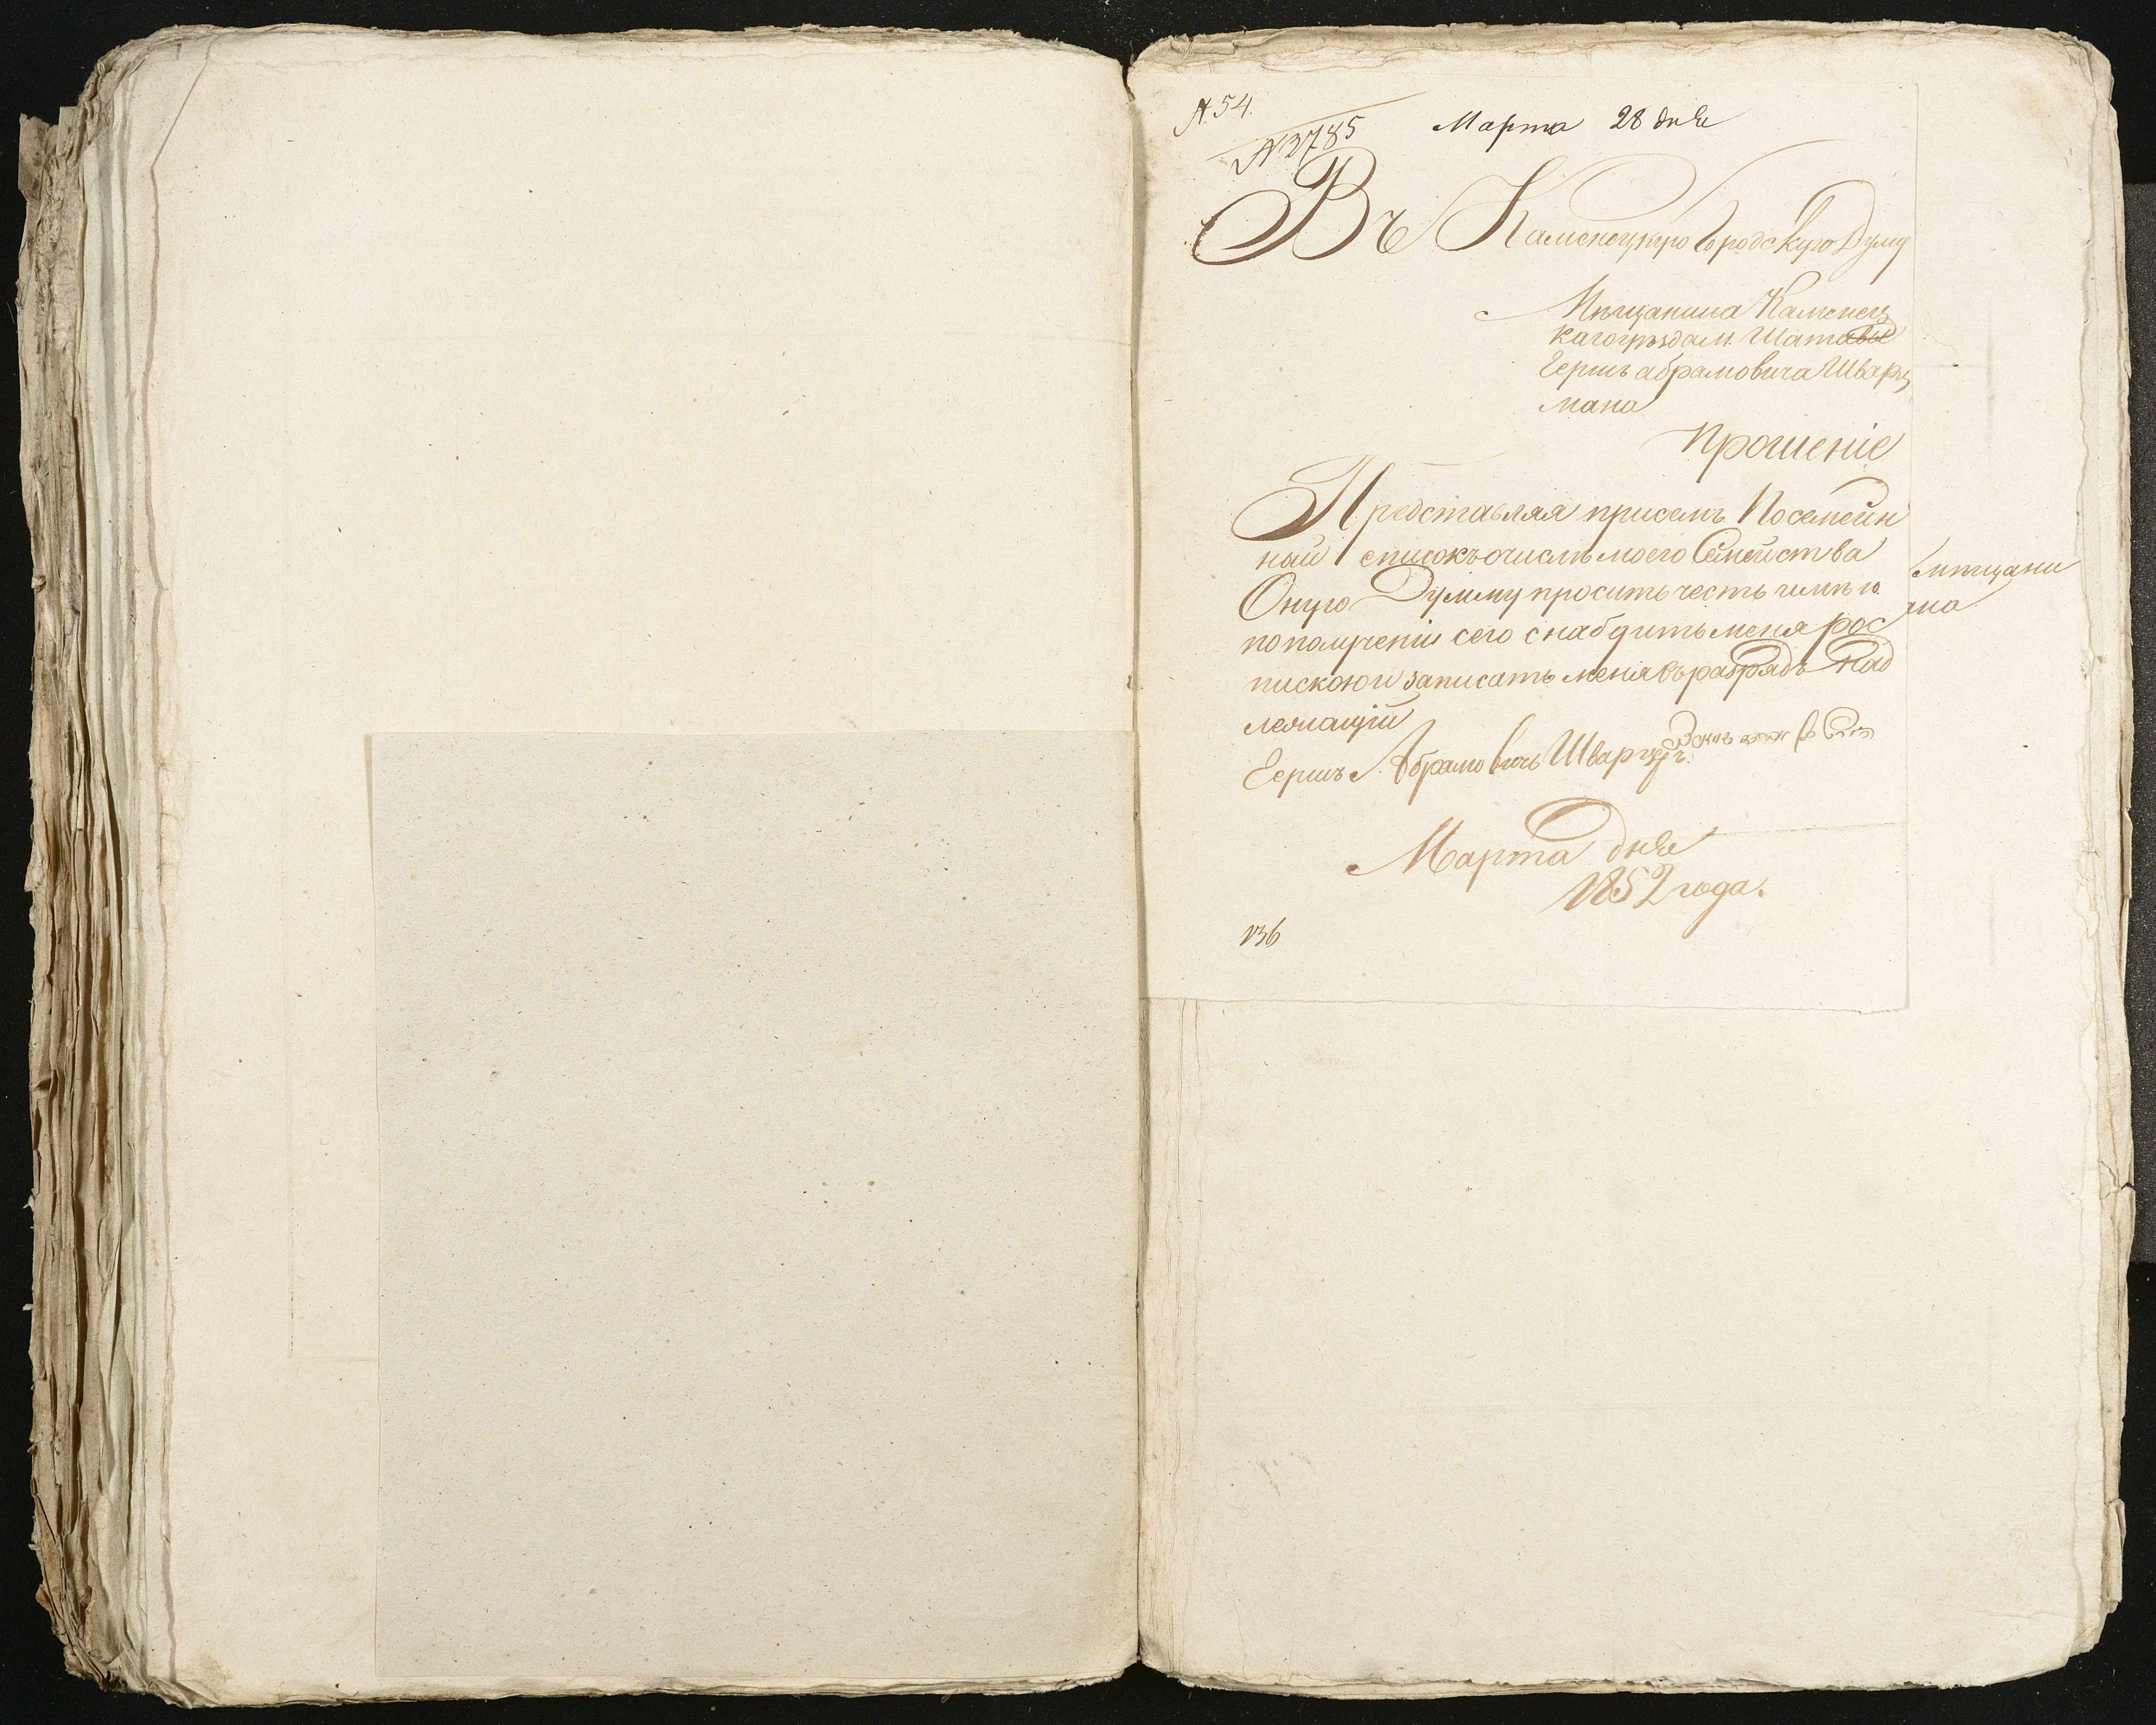 № 54.
№ 3785 Марта 28 дня
Въ Каменецкую Городскую Думу
Мѣщанина Каменец
кагоуѣзда м. Шатавы
Герша абрамовича Шварц
мана
Прошеніе
Представляя присемъ Посемейн
най списокъ очислѣ моего Семейства
Оную Думму просить честь имѣю
пополученіи сего снабдить меня рос
пискою и записать меня въразрядъ Над
лежащій
Гершъ Абрамовичъ Шварц
Марта дня
1852 года.
136